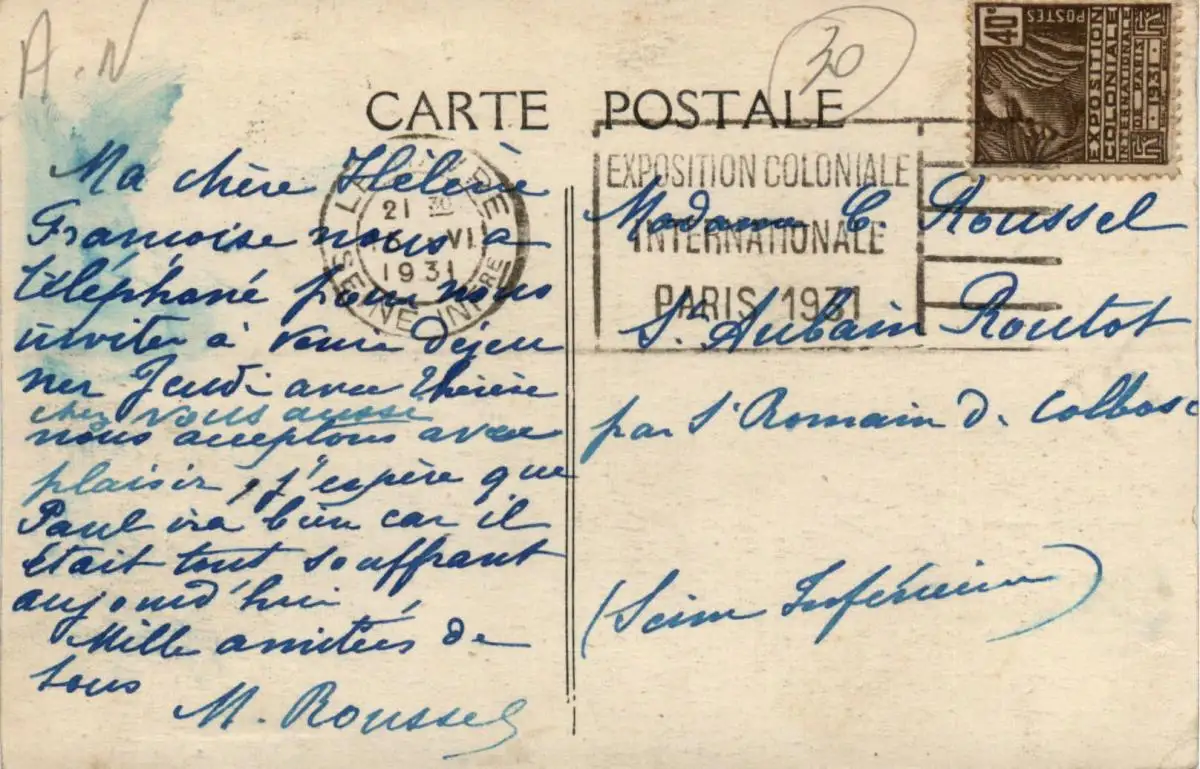 A.N
30
40c
POSTES
EXPOSITION
COLONIALE
INTERNATIONALE
DE PARIS
1931
CARTE POSTALE
EXPOSITION COLONIALE
INTERNATIONALE
PARIS 1931
21 30
VI
1931
SEINE INFRE
Ma chère Hélène
Françoise nous a
téléphoné pour nous
inviter à venir déjeu
ner Jeudi avec Thérèse
chez vous aussi
nous acceptons avec
plaisir, j'espère que
Paul ira bien car il
était tout souffrant
aujourd'hui
Mille amitiés de
tous
M. Roussel
Madame C. Roussel
St Aubain Routot
par St Romain de Colbosc
(Seine Inférieure)